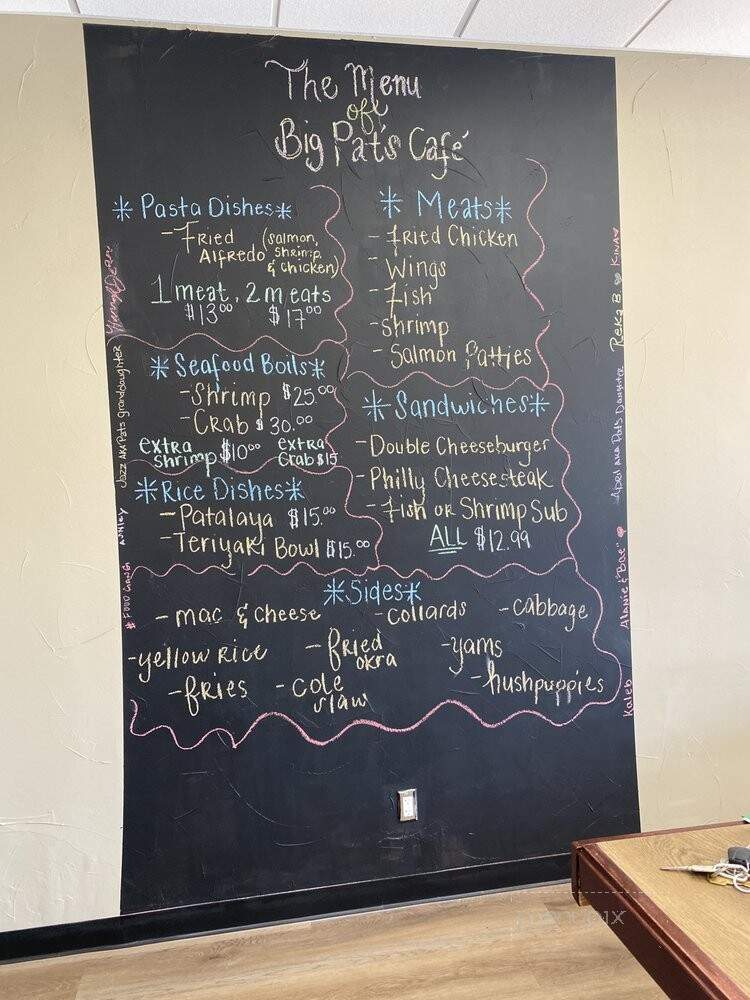 The Menu
of
Big Pat's Café
*Pasta Dishes*
-Fried
Alfredo
(salmon,
shrimp,
& chicken)
1 meat, 2 meats
$13⁰⁰ $17⁰⁰
*Seafood Boils*
-Shrimp $25.⁰⁰
-Crab $30.⁰⁰
extra
shrimp $10⁰⁰
extra
crab $15
*Rice Dishes*
-Patalaya $15.⁰⁰
-Teriyaki Bowl $15.⁰⁰
*Meats*
- Fried Chicken
- Wings
- Fish
-shrimp
- Salmon Patties
*Sandwiches*
-Double Cheeseburger
-Philly Cheesesteak
-Fish or Shrimp Sub
ALL $12.99
*Sides*
- mac & cheese
-collards
-cabbage
-yellow Rice
-fried
okra
-yams
-fries
-cole
slaw
-hushpuppies
Jazz AKA Pats granddaughter
Ashley
# FOOD GANG
Reka B. KINA
April AKA Pats Daughter
Alanie & "Bae"
Kaleb